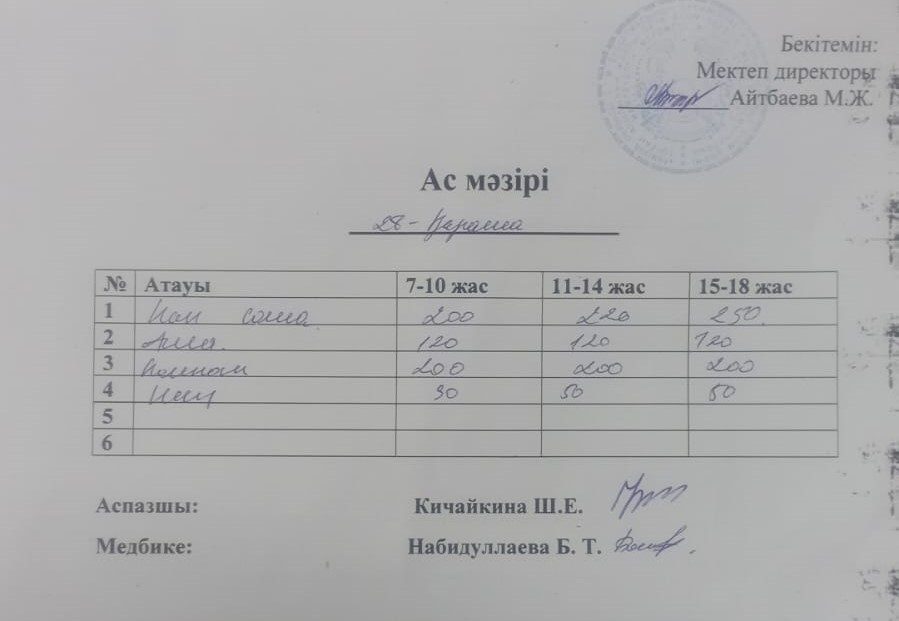 Бекітемін:
Мектеп директоры
Айтбаева М.Ж.
Ас мәзірі
28- Қараша
№ Атауы 7-10 жас 11-14 жас 15-18 жас
1 200 220 250
2 Алма 120 120 120
3 Компот 200 200 200
4 Нан 30 50 50
5
6
Аспазшы: Кичайкина Ш.Е.
Медбике: Набидуллаева Б. Т.